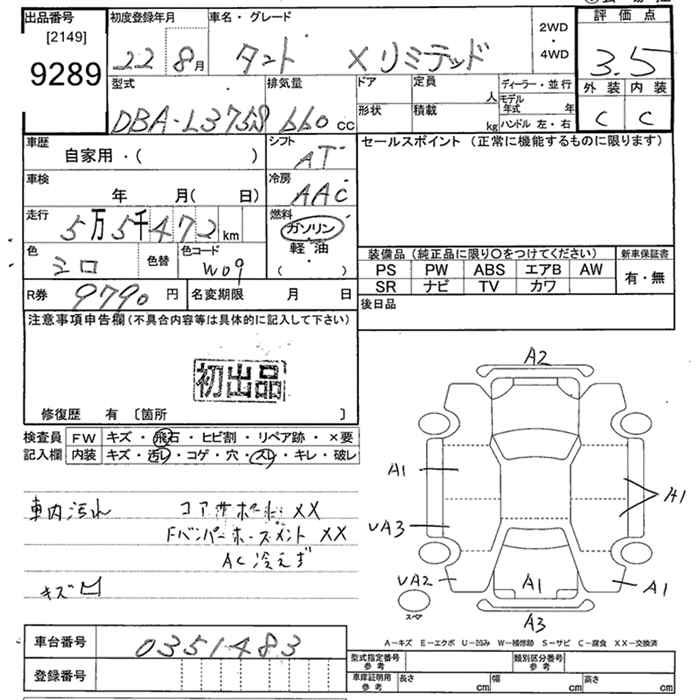 出品番号
[2149]
9289
初度登録年月
22 8月
車名・グレード
タント Xリミテッド
2WD
・
4WD
評価点
3.5
外装 内装
C C
型式
DBA-L375S
排気量
660 cc
ドア
形状
定員
人
積載
kg
ディーラー・並行
モデル年式 年
ハンドル 左・右
車歴
自家用・( )
シフト
AT
車検
年 月( 日)
冷房
AAC
走行
5万5千472 km
燃料
ガソリン
軽・油
( ・ )
色
シロ
色替
色コード
W09
セールスポイント (正常に機能するものに限ります)
装備品 (純正品に限り〇をつけてください)
PS PW ABS エアB AW
SR ナビ TV カワ
新車保証書
有・無
R券 9790 円
名変期限 月 日
後日品
注意事項申告欄 (不具合内容等は具体的に記入して下さい)
初出品
修復歴 有 〔箇所 〕
検査員
記入欄
FW キズ・飛石・ヒビ割・リペア跡・×要
内装 キズ・汚レ・コゲ・穴・スレ・キレ・破レ
車内汚れ
コアサポート XX
Fバンパーホースメント XX
AC冷えず
キズ凹
A2
A1
A1
UA3
UA2
A1
A1
A3
スペア
A-キズ E-エクボ U-凹み W-補修跡 S-サビ C-腐食 XX-交換済
車台番号 0351483
登録番号
型式指定番号
参考
類別区分番号
参考
車庫証明用
参考
長さ cm
幅 cm
高さ cm